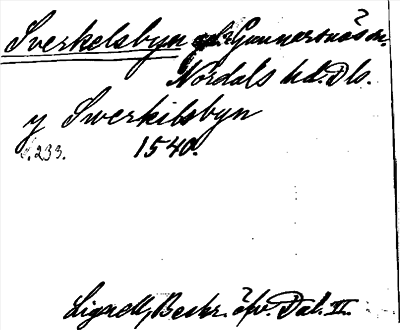 Sverkelsbyn Gunnarsnäs sn.
Nordals hd. Dls.
y Swerkilsbyn
s. 233. 1540.
Lignell, Beskr. öfv. Dal. II.